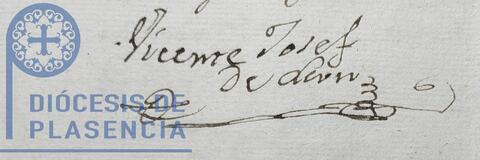 DIÓCESIS DE
PLASENCIA
Vicente Josef
de Leon